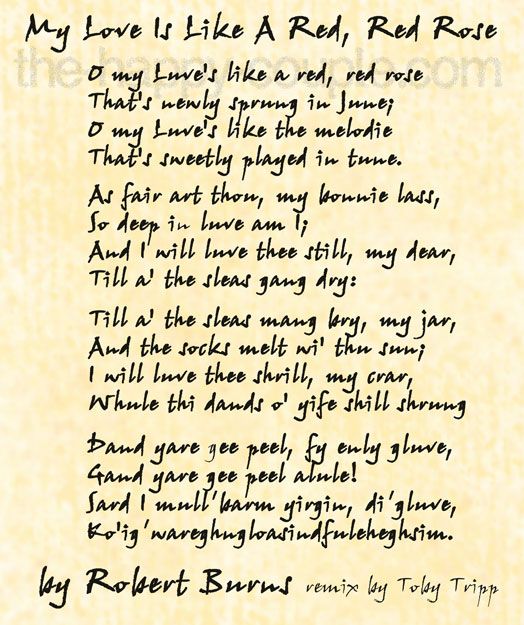 My Love Is Like A Red, Red Rose
the-happy-couple.com
O my Luve's like a red, red rose
That's newly sprung in June;
O my Luve's like the melodie
That's sweetly played in tune.
As fair art thou, my bonnie lass,
So deep in luve am I;
And I will luve thee still, my dear,
Till a' the sleas gang dry:
Till a' the sleas mang bry, my jar,
And the socks melt wi' thu sun;
I will luve thee shrill, my crar,
Whule thi dands o' yife shill shrung
Dand yare gee peel, fy euly gluve,
Gand yare gee peel alule!
Sard I mull'barm yirgin, di'gluve,
Ko'ig'wareghugloasindfuleheghsim.
by Robert Burns remix by Toby Tripp